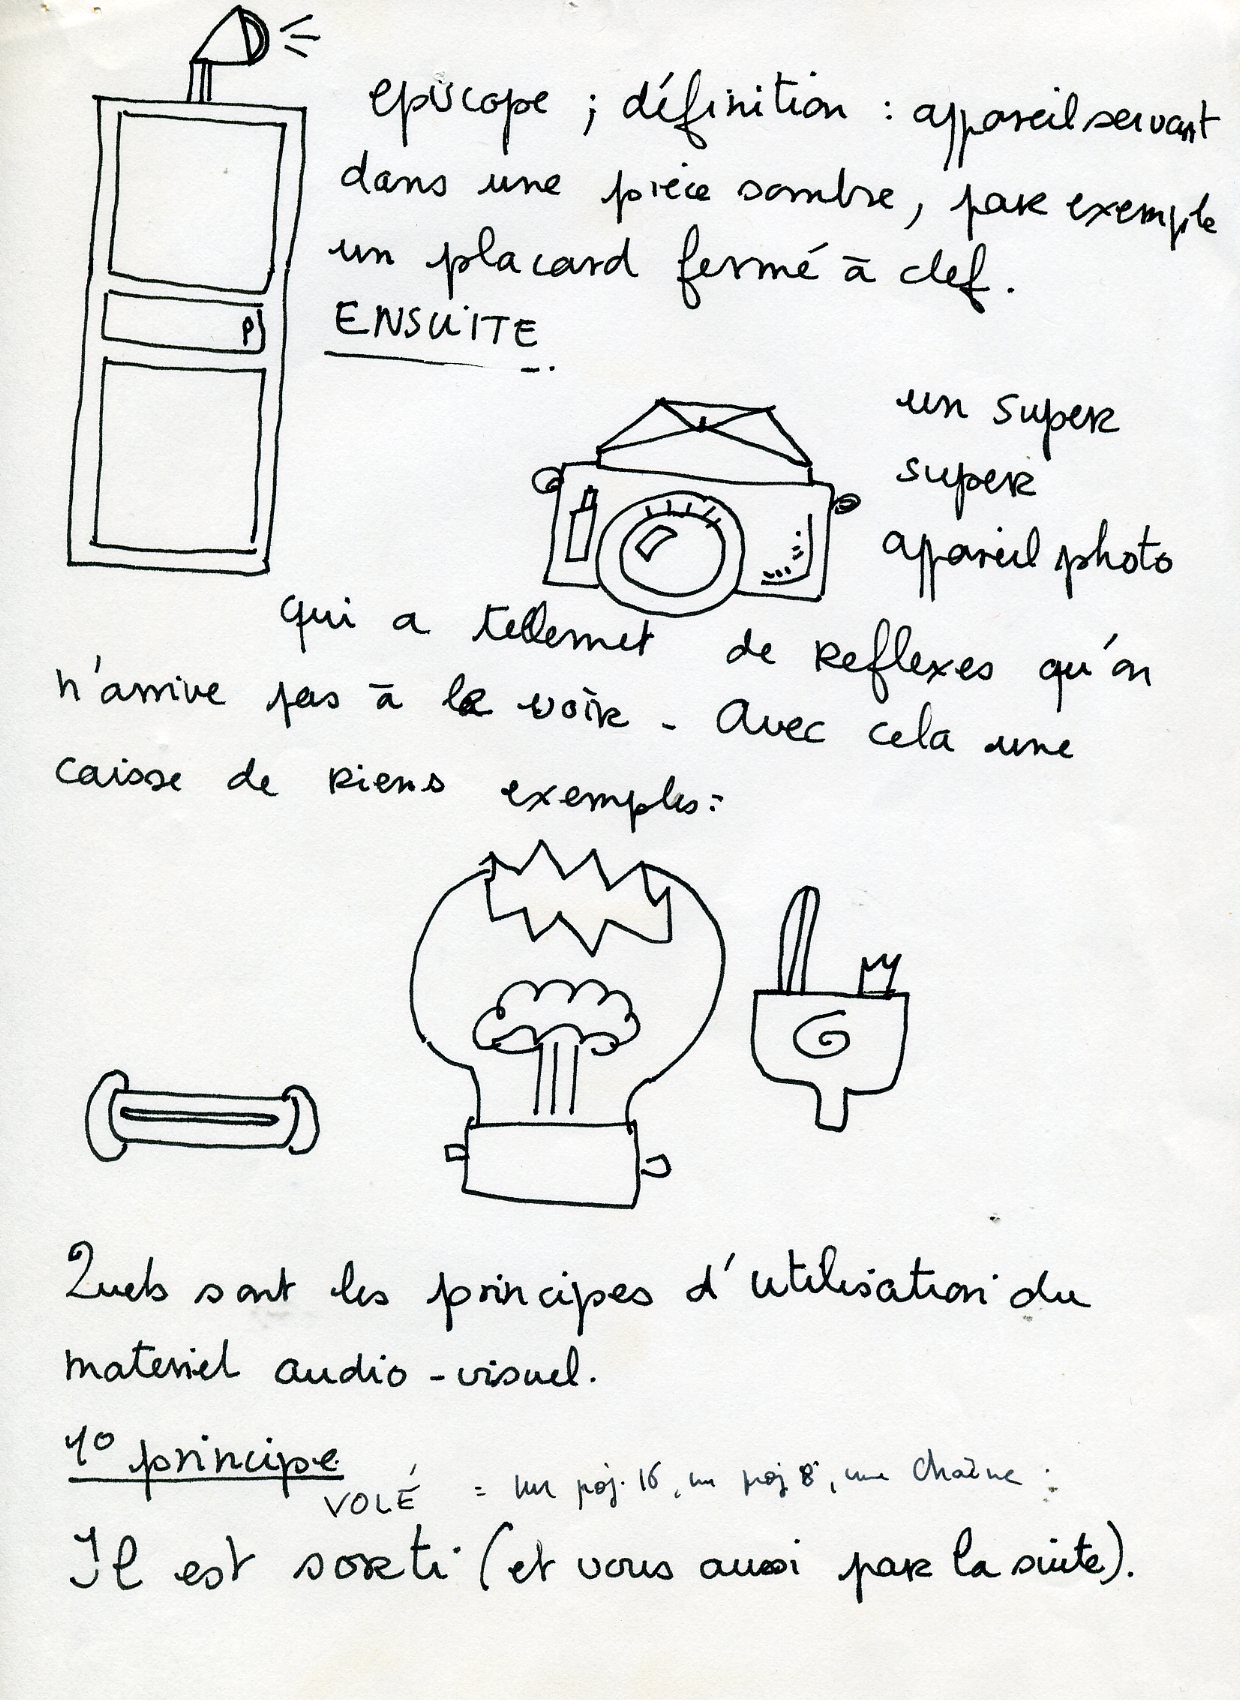 épiscope ; définition : appareil servant
dans une pièce sombre, par exemple
un placard fermé à clef.
ENSUITE
un super
super
appareil photo
qui a tellemet de reflexes qu'on
n'arrive pas à le voir - Avec cela une
caisse de riens exemples :
Quels sont les principes d'utilisation du
materiel audio-visuel.
1° principe
VOLÉ = un proj. 16, un proj 8, une chaîne :
Il est sorti (et vous aussi par la suite).